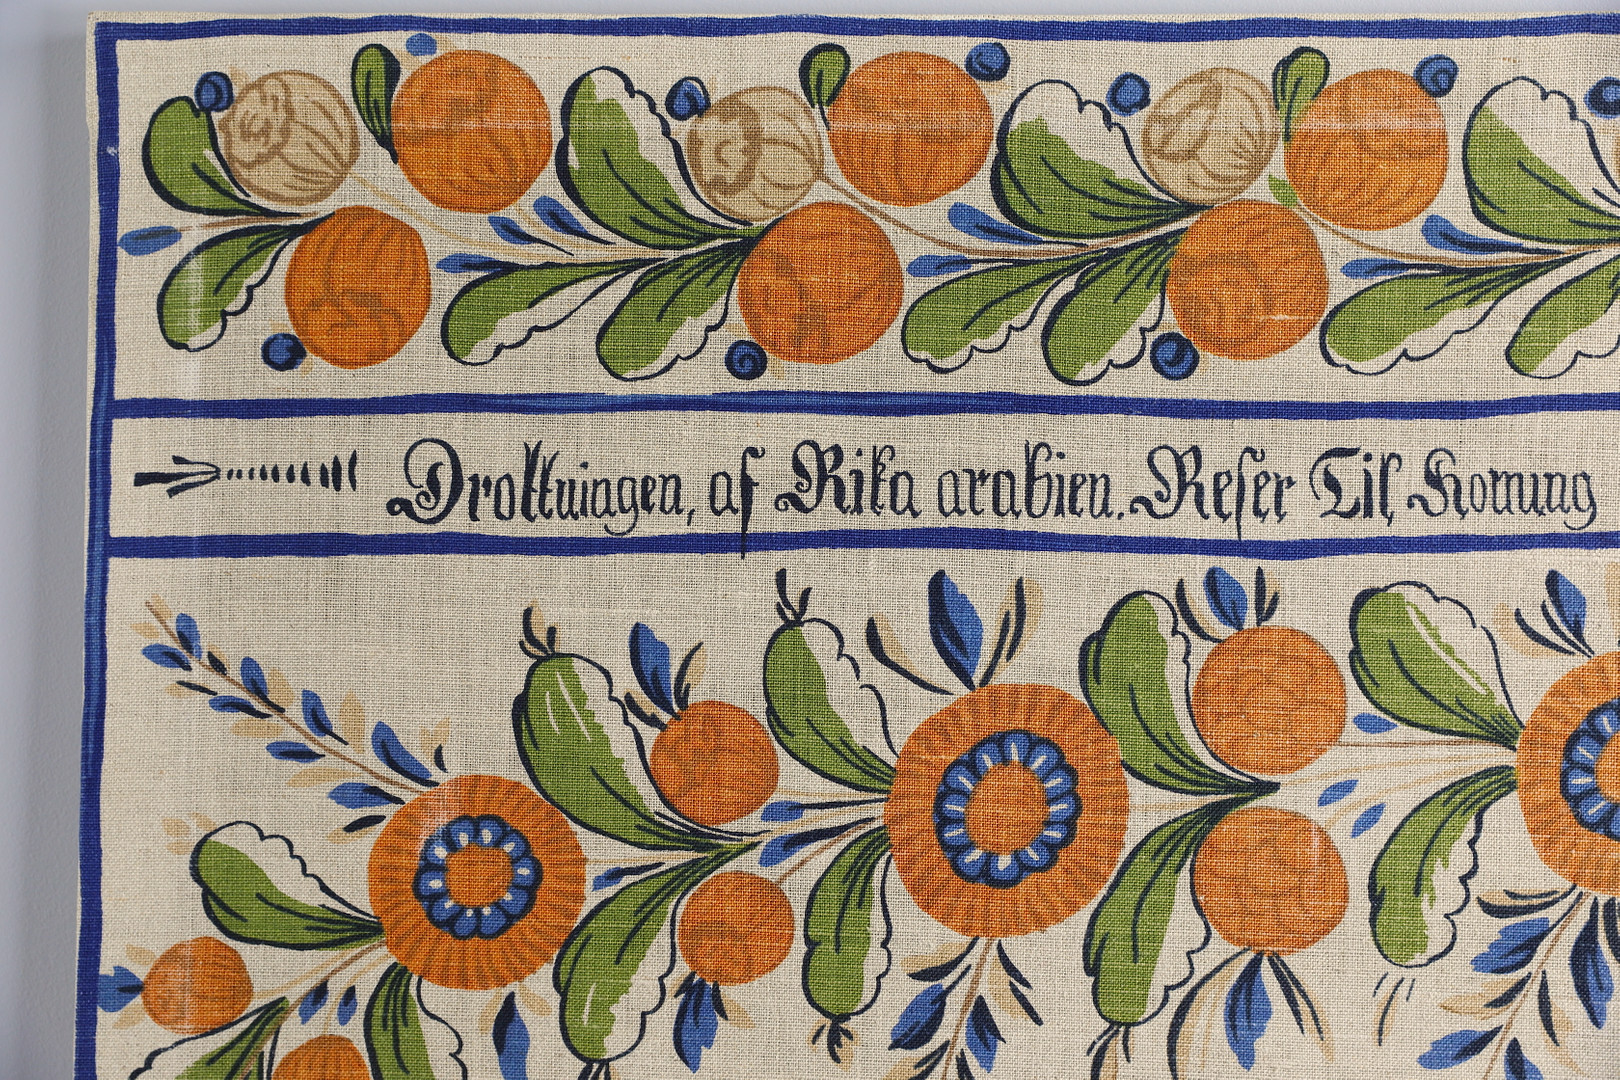 Drottningen, af Rika arabien. Reser Til Konung